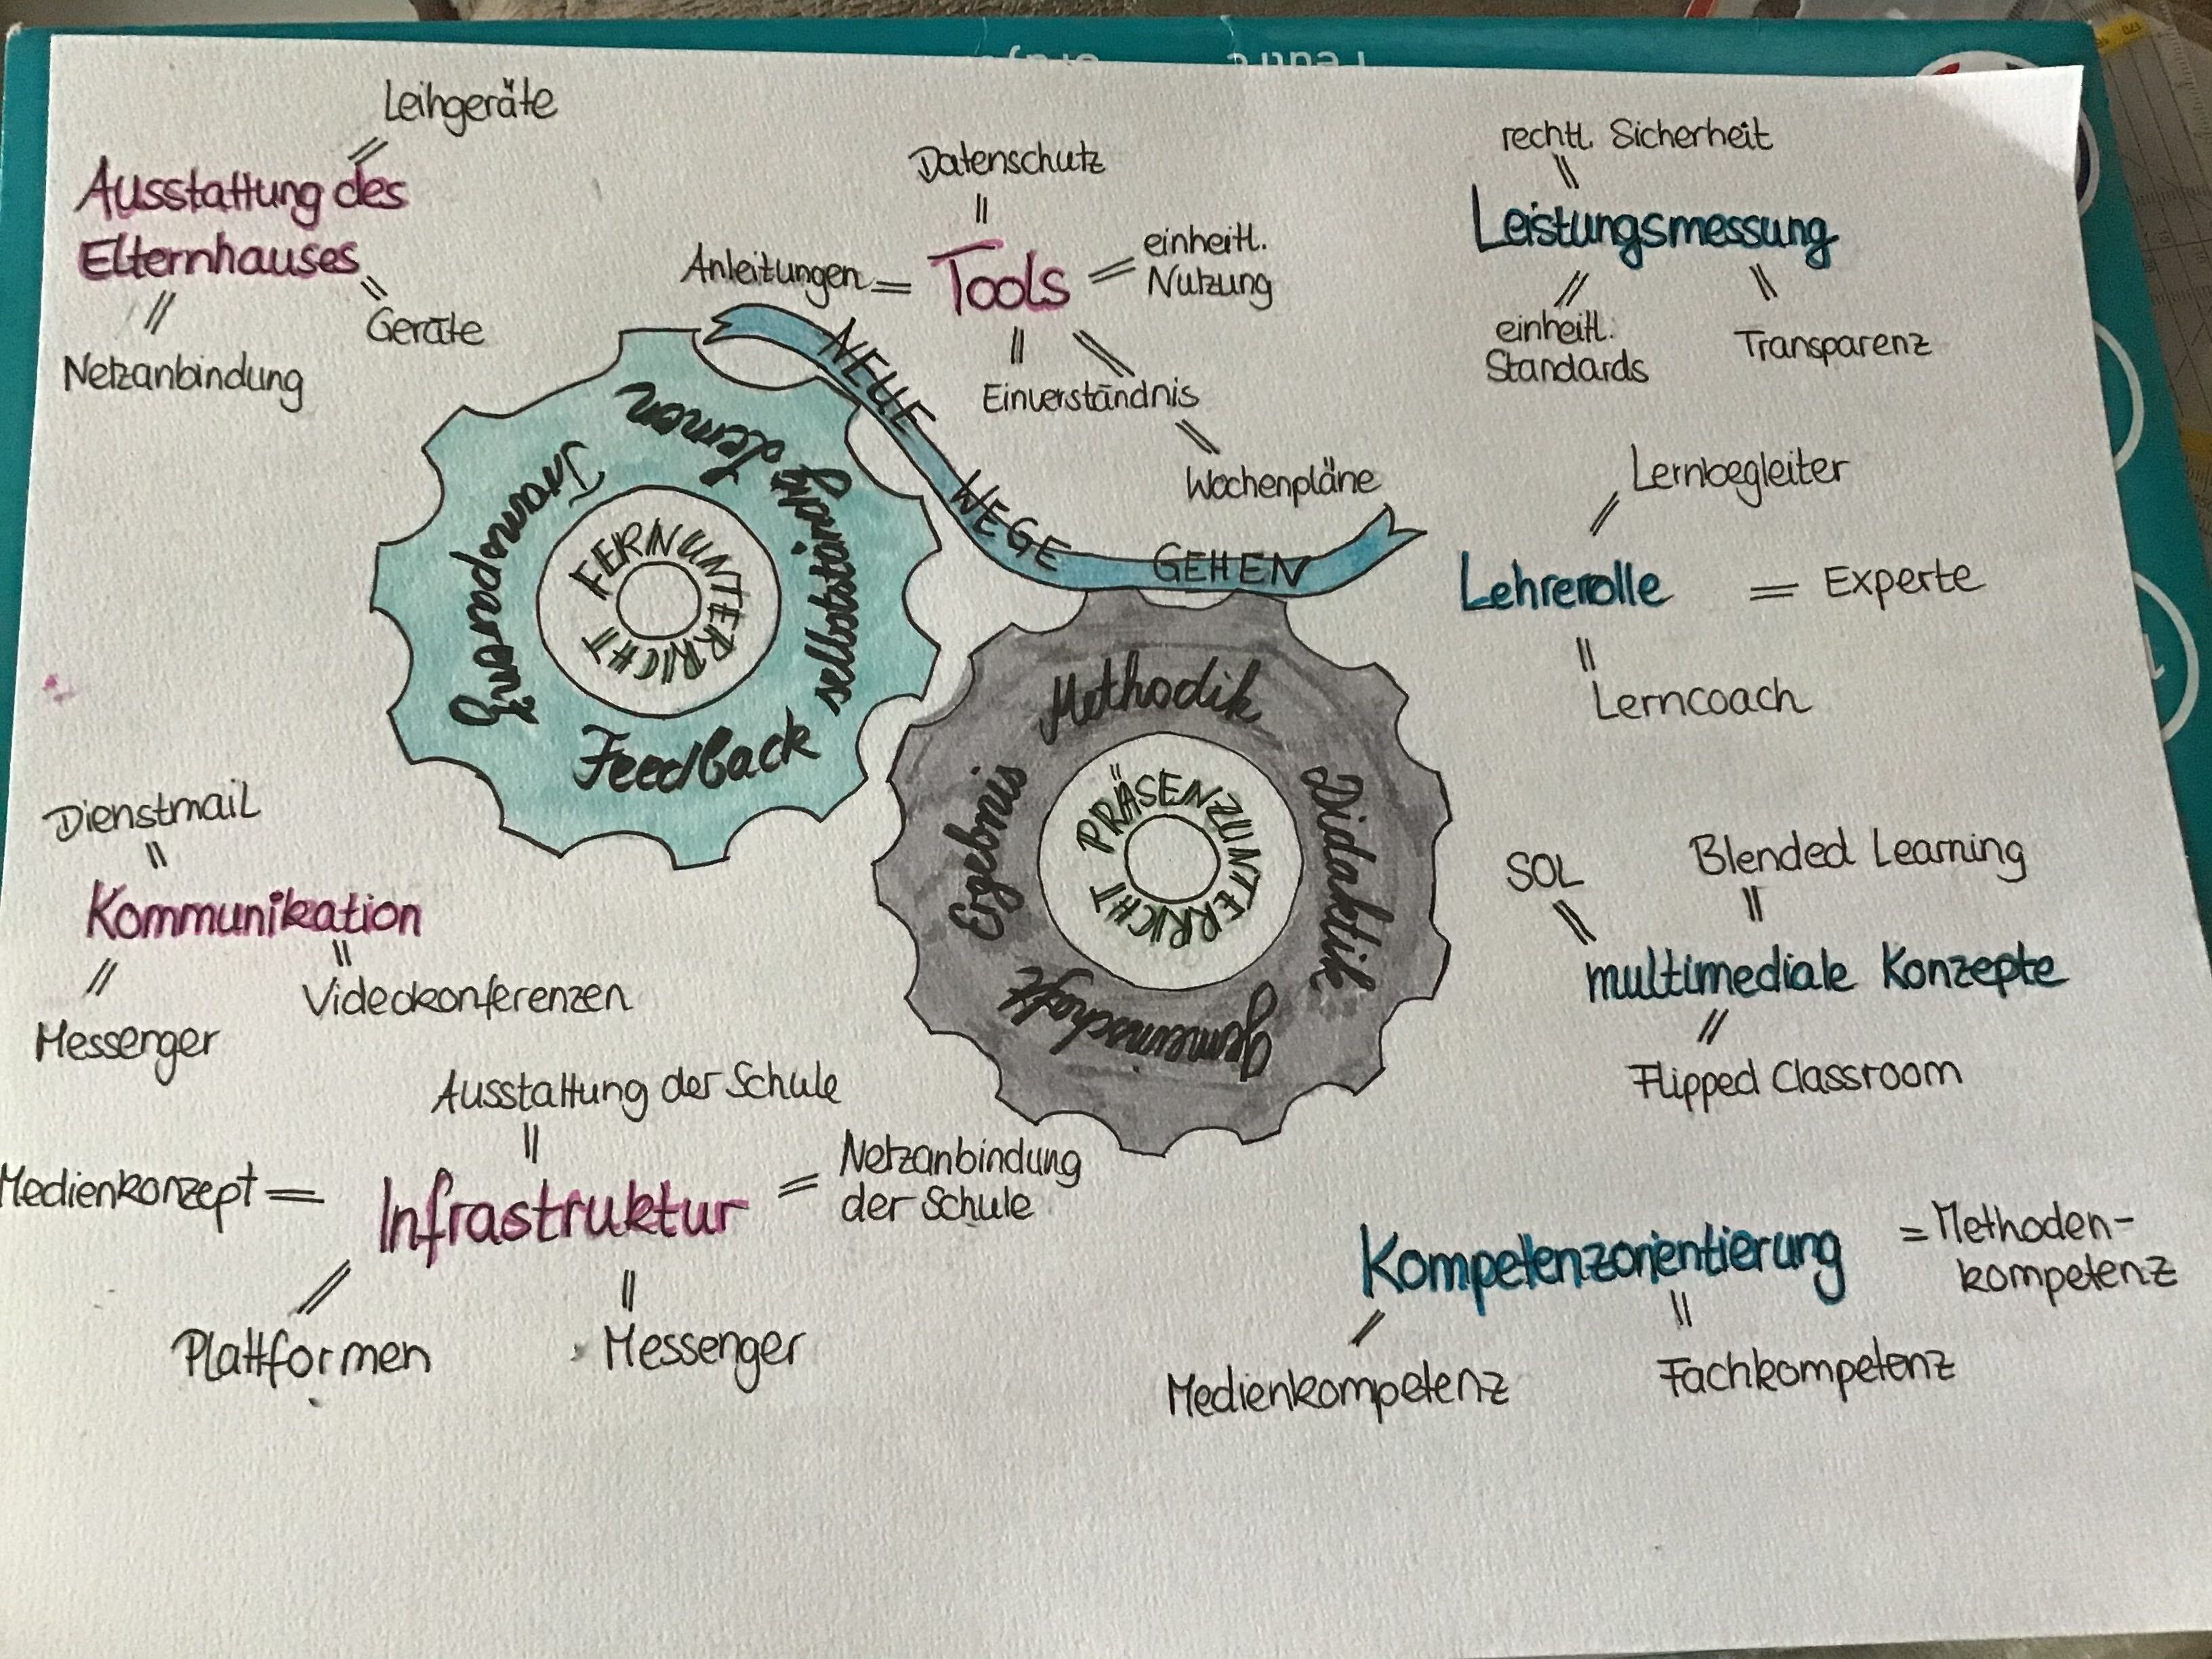 Leihgeräte
Ausstattung des
Elternhauses
Geräte
Netzanbindung
Datenschutz
Anleitungen
Tools
einheitl.
Nutzung
Einverständnis
Wochenpläne
rechtl. Sicherheit
Leistungsmessung
einheitl.
Standards
Transparenz
NEUE WEGE GEHEN
Lernbegleiter
Lehrerolle
Experte
Lerncoach
FERNUNTERRICHT
Transparenz
selbstständig
Lernen
Feedback
PRÄSENZUNTERRICHT
Methodik
Didaktik
Gemeinschaft
Ergebnis
Dienstmail
Kommunikation
Videokonferenzen
Messenger
SOL
Blended Learning
multimediale Konzepte
Flipped Classroom
Ausstattung der Schule
Medienkonzept
Infrastruktur
Netzanbindung
der Schule
Plattformen
Messenger
Kompetenzorientierung
Methoden-
kompetenz
Medienkompetenz
Fachkompetenz